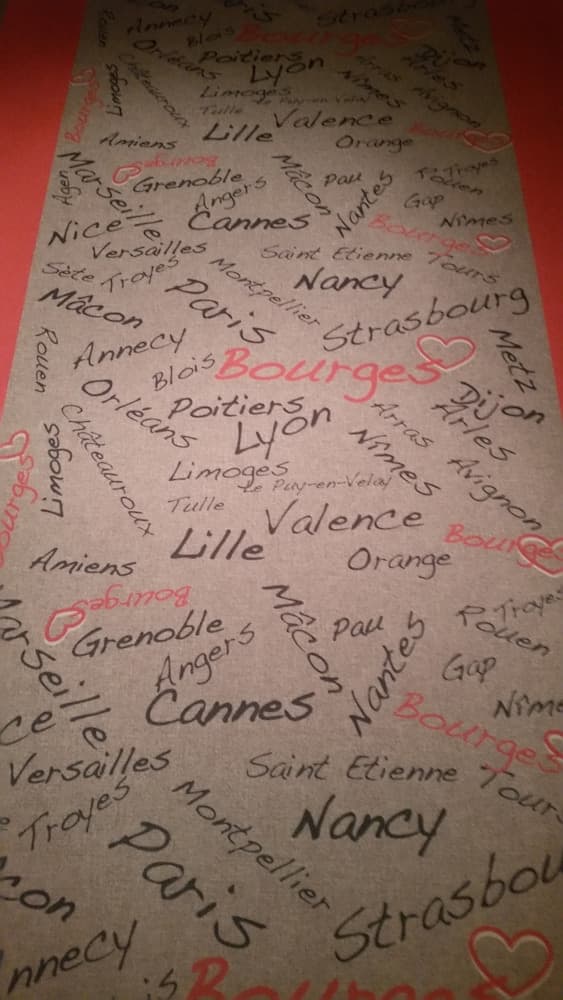 Annecy
Paris
Strasbourg
Rouen
Orléans
Blois
Bourges
Metz
Châteauroux
Poitiers
Lyon
Arras
Dijon
Arles
Limoges
Bourges
Limoges
Nîmes
Avignon
Tulle
Le Puy-en-Velay
Lille
Valence
Amiens
Orange
Bourges
Bourges
Marseille
Agen
Grenoble
Angers
Mâcon
Pau
Nantes
Troyes
Rouen
Gap
Nîmes
Nice
Cannes
Bourges
Versailles
Saint Etienne
Tours
Sète
Troyes
Montpellier
Nancy
Mâcon
Paris
Strasbourg
Rouen
Annecy
Blois
Bourges
Metz
Orléans
Poitiers
Lyon
Arras
Dijon
Arles
Limoges
Châteauroux
Limoges
Nîmes
Avignon
Le Puy-en-Velay
Tulle
Valence
Bourges
Lille
Bourges
Amiens
Orange
Bourges
Grenoble
Mâcon
Pau
Troyes
Rouen
Marseille
Angers
Nantes
Gap
Cannes
Nîme
Bourges
ce
Versailles
Saint Etienne
Tours
Troyes
Montpellier
Nancy
Paris
con
Strasbou
nnecy
is
Bourges